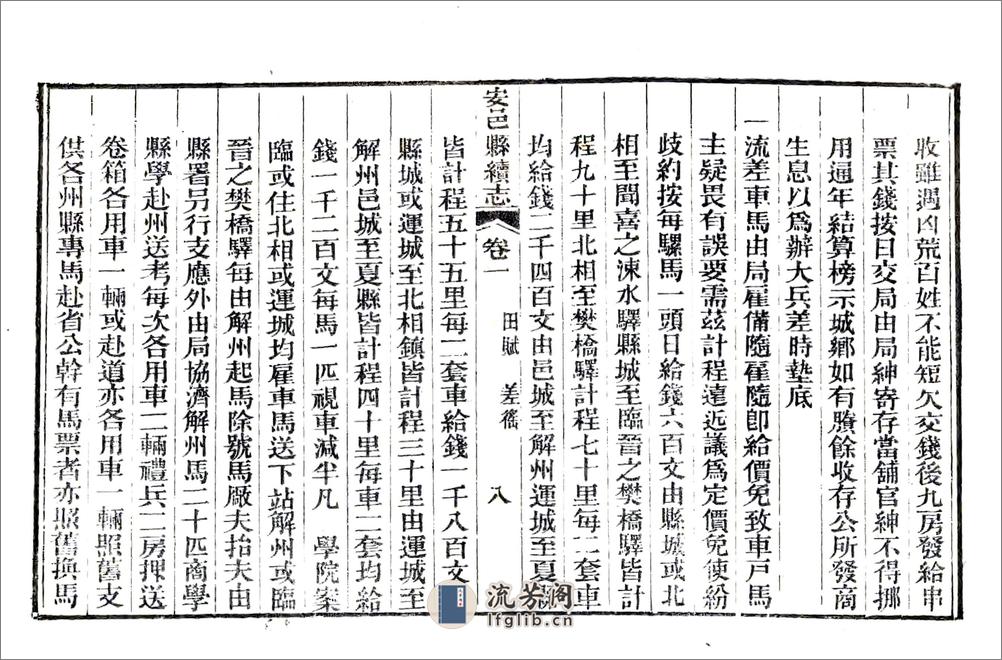 收雖遇凶荒百姓不能短欠交錢後九房發給串
票其錢按日交局由局紳寄存當舖官紳不得挪
用通年結算榜示城鄉如有賸餘收存公所發商
生息以爲辦大兵差時墊底
一流差車馬由局雇備隨雇隨卽給價免致車戸馬
主疑畏有誤要需茲計程遠近議爲定價免使紛
歧約按每騾馬一頭日給錢六百文由縣城或北
相至聞喜之涑水驛縣城至臨晉之樊橋驛皆計
程九十里北相至樊橋驛計程七十里每二套車
均給錢二千四百文由邑城至解州運城至夏縣
安邑縣續志 卷一 田賦 差徭 八
皆計程五十五里每二套車給錢一千八百文
縣城或運城至北相鎮皆計程三十里由運城至
解州邑城至夏縣皆計程四十里每車二套均給
錢一千二百文每馬一匹視車減半凡 學院案
臨或住北相或運城均雇車馬送下站解州或臨
晉之樊橋驛每由解州起馬除號馬厰夫抬夫由
縣署另行支應外由局協濟解州馬二十匹商學
縣學赴州送考每次各用車二輛禮兵二房押送
卷箱各用車一輛或赴道亦各用車一輛照舊支
供各州縣專馬赴省公幹有馬票者亦照舊撰馬
流芳閣
lfglib.cn